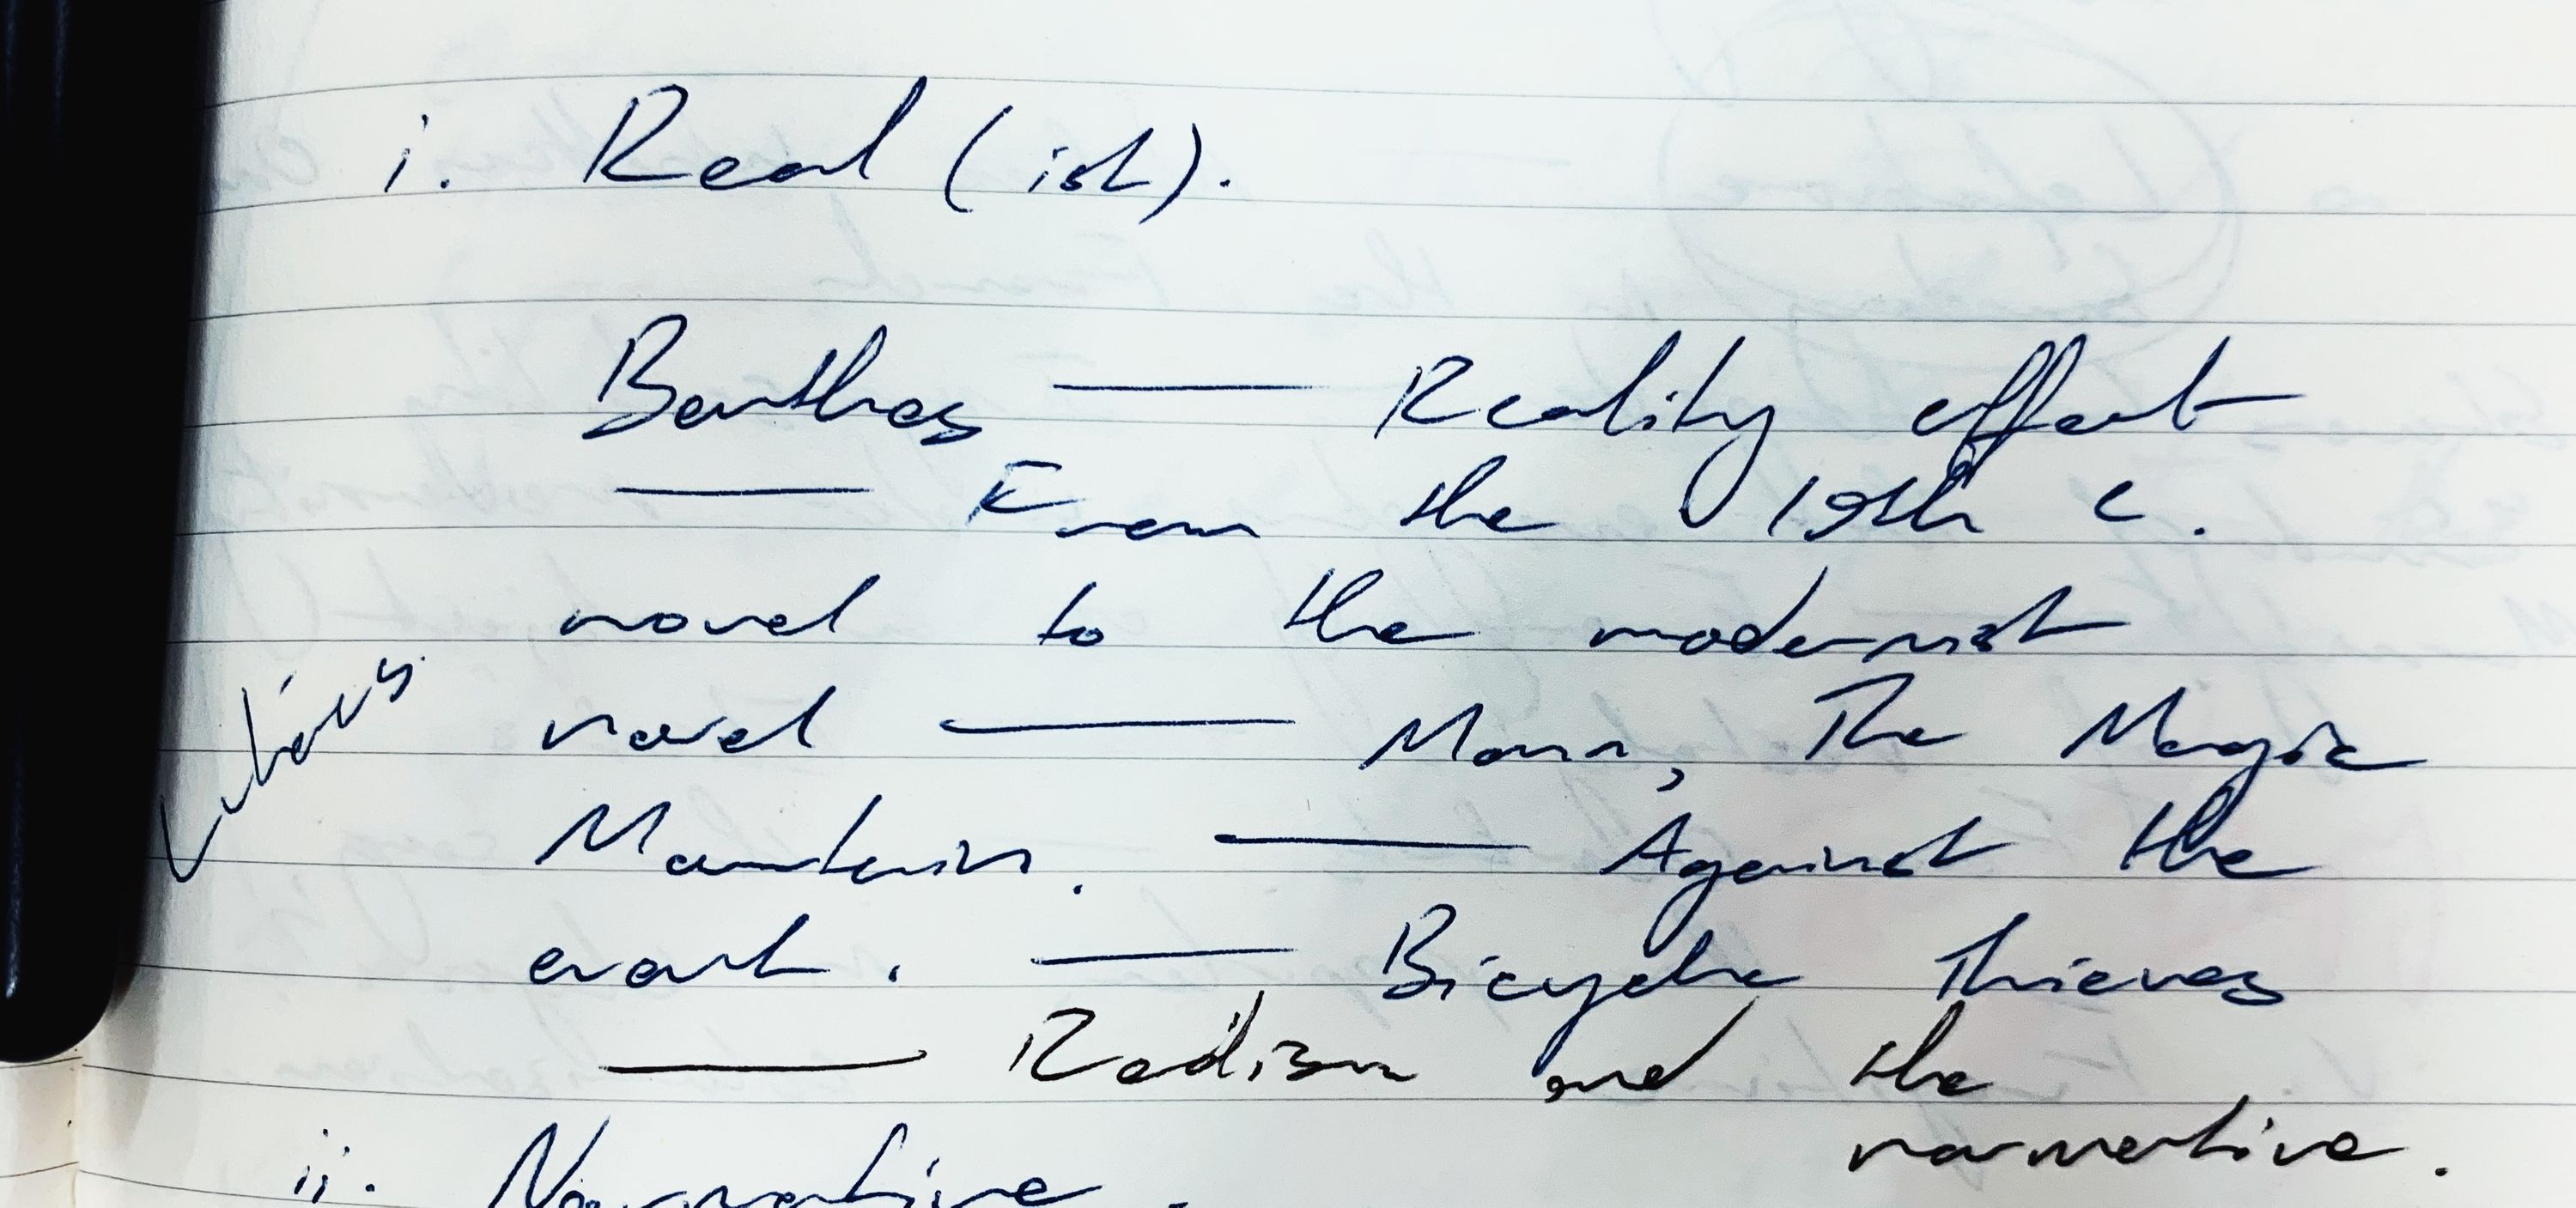 i. Real (ish).
Barthes — Reality effect
— From the 19th c.
novel to the modernist
novel — Mann, The Magic
Mountain. — Against the
event. — Bicycle Thieves
— Realism and the
normative.
ii. Normative.